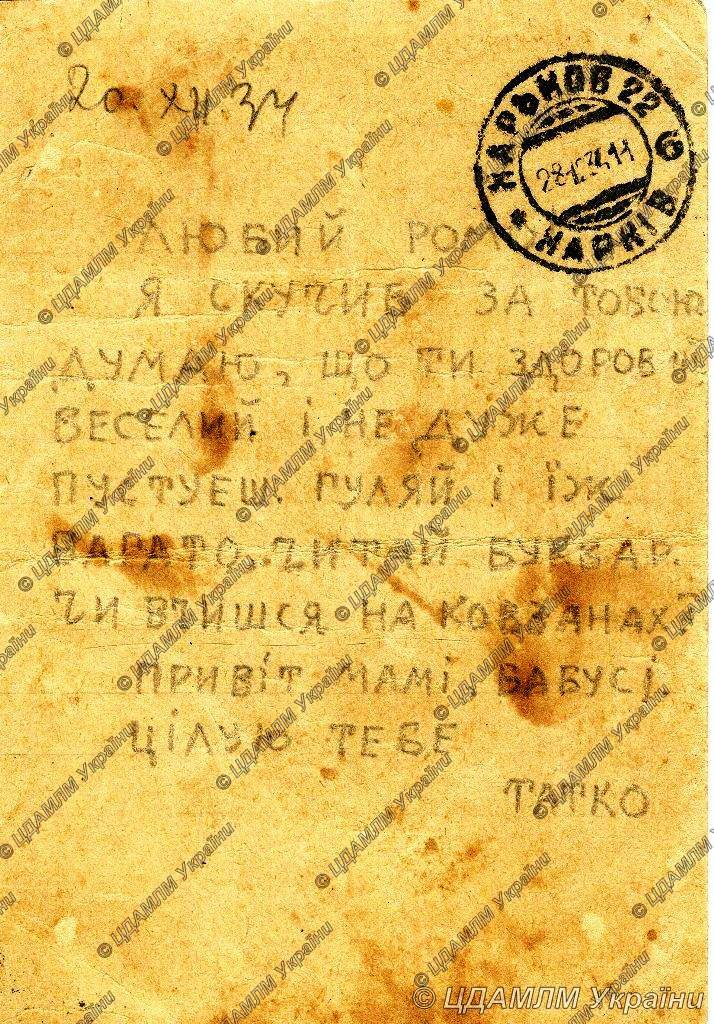 20.XII.34
ХАРЬКОВ 22 б
ХАРКІВ
ЛЮБИЙ
Я СКУЧИВ ЗА ТОБОЮ
ДУМАЮ, ЩО ТИ ЗДОРОВИЙ
ВЕСЕЛИЙ І НЕ ДУЖЕ
ПУСТУЕШ. ГУЛЯЙ І ЇЖ
БАГАТО. ЧИТАЙ БУКВАР.
ЧИ ВЧИШСЯ НА КОВЗАНАХ?
ПРИВІТ МАМІ БАБУСІ
ЦІЛУЮ ТЕБЕ
ТАТКО
© ЦДАМЛМ України